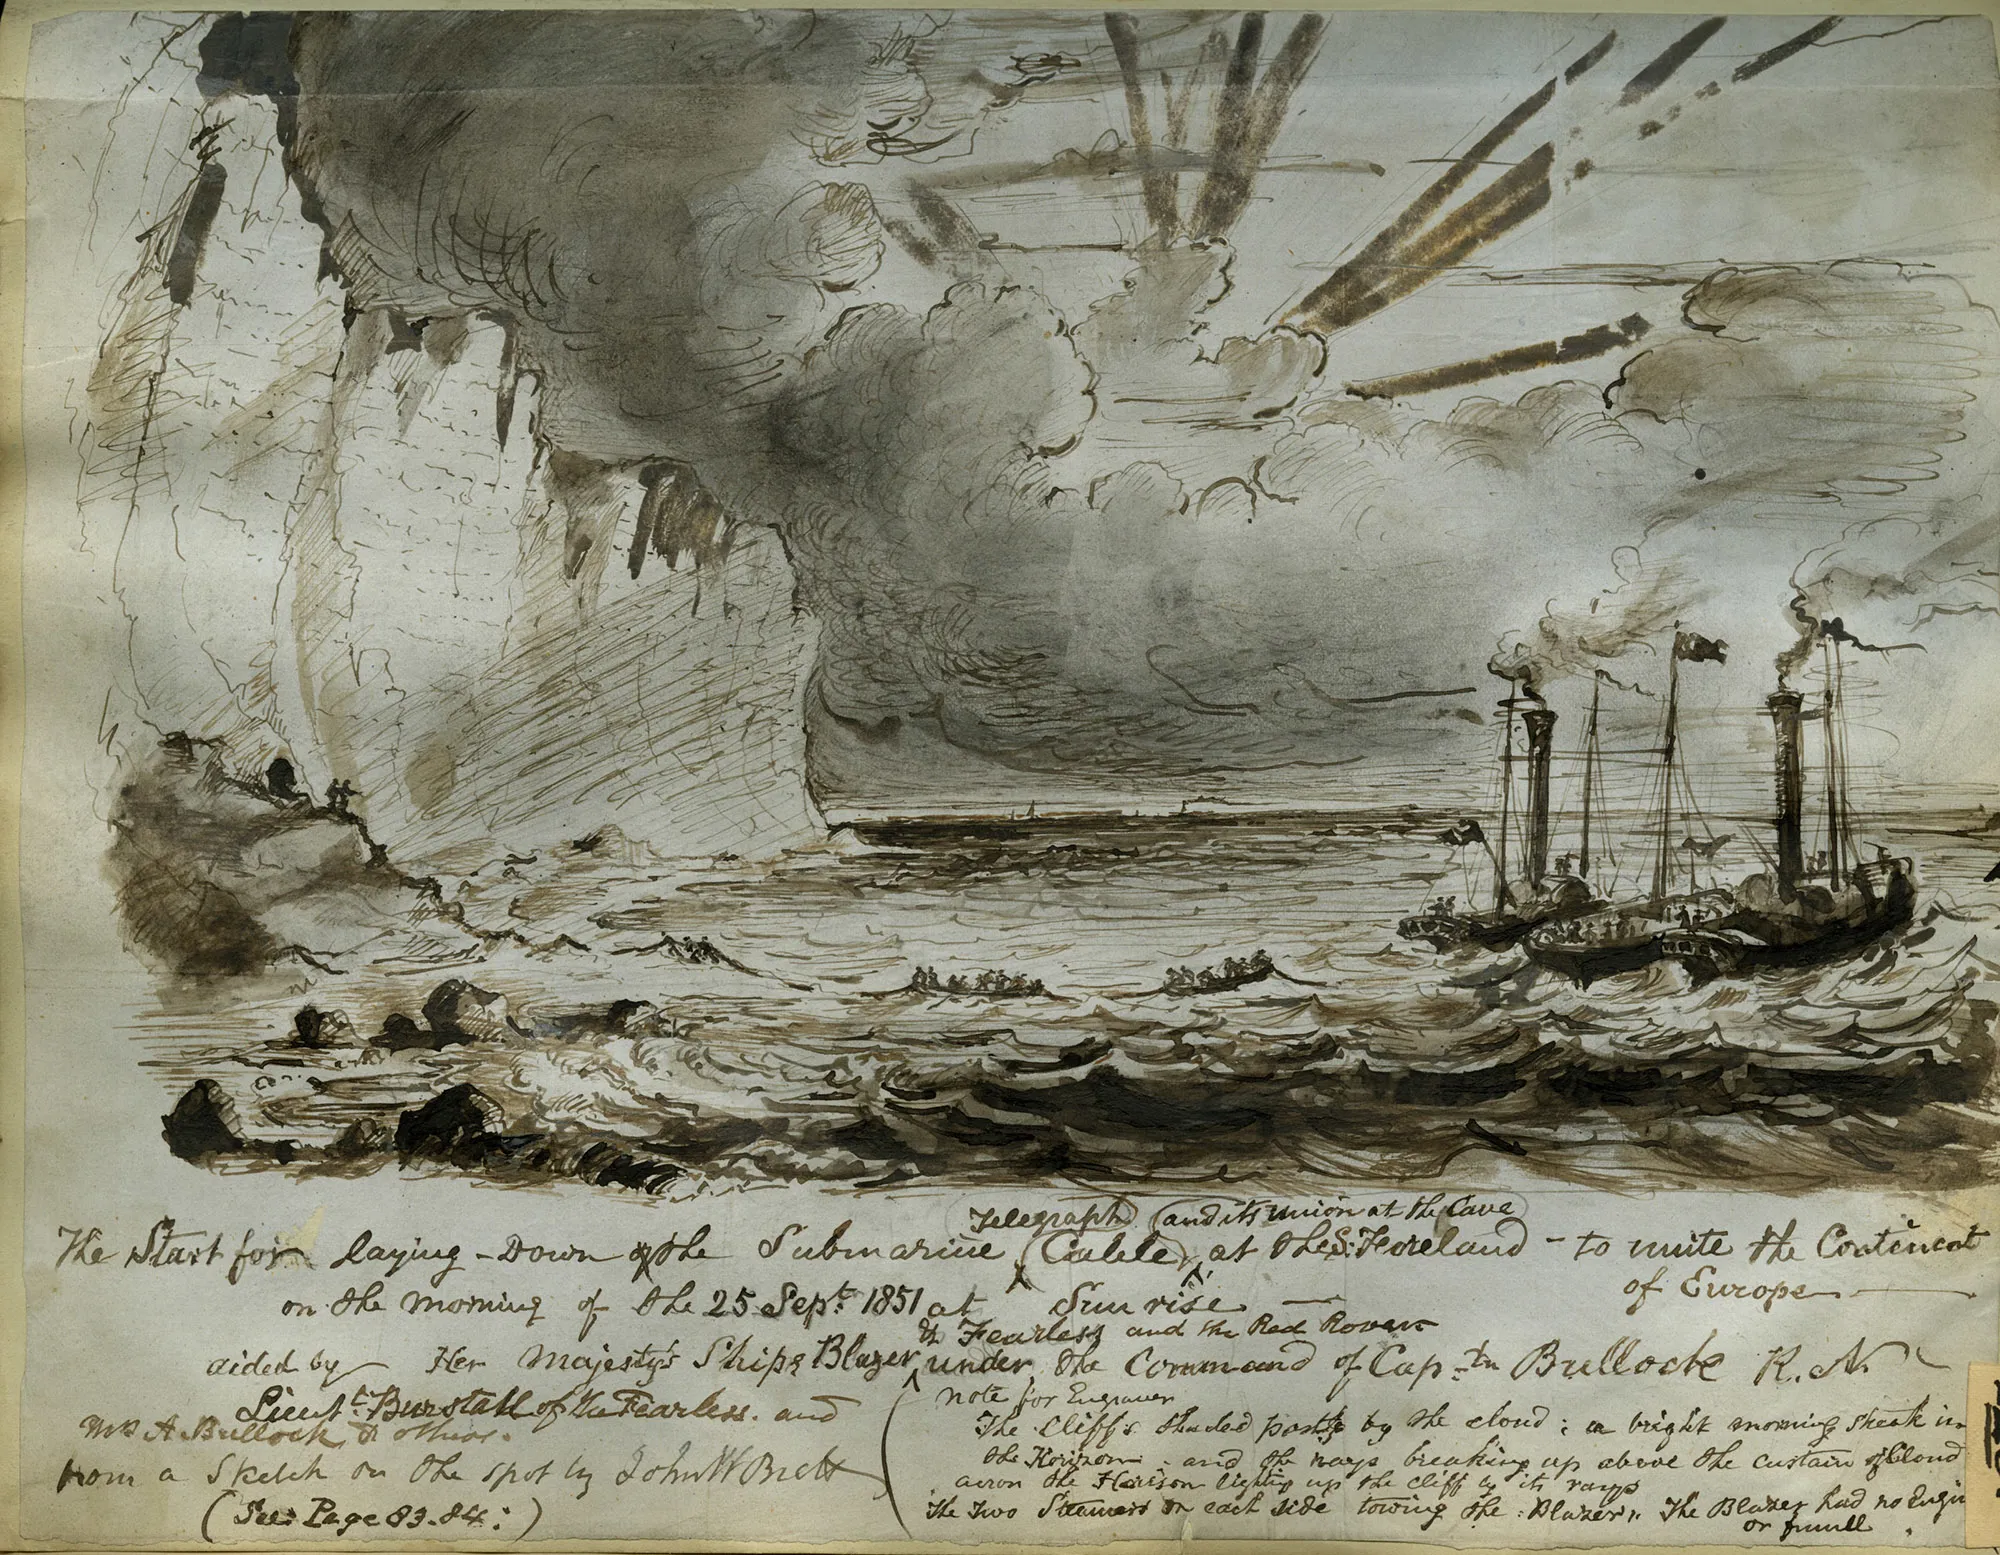 Telegraph (and its union at the Cave
The Start for laying-Down of the Submarine (Cable) at the S. Foreland - to unite the Contenent
of Europe
on the morning of the 25 Sept. 1851 at Sun rise
& Fearless and the Red Rover
aided by Her Majesty's Ships Blazer, under the Command of Cap-tn Bullock R.N.
Lieut. Burstall of the Fearless. and
Mr A. Bullock & others.
from a Sketch on the spot by John W Brett
(See Page 83.84:)
note for Engraver
The Cliffs shaded partly by the cloud; a bright morning streak in
the Horizon; and the rays breaking up above the curtain of Cloud
across the Horison lighting up the cliff by its rays
The Two Steamers on each side towing the Blazer. The Blazer had no Engin
or funell